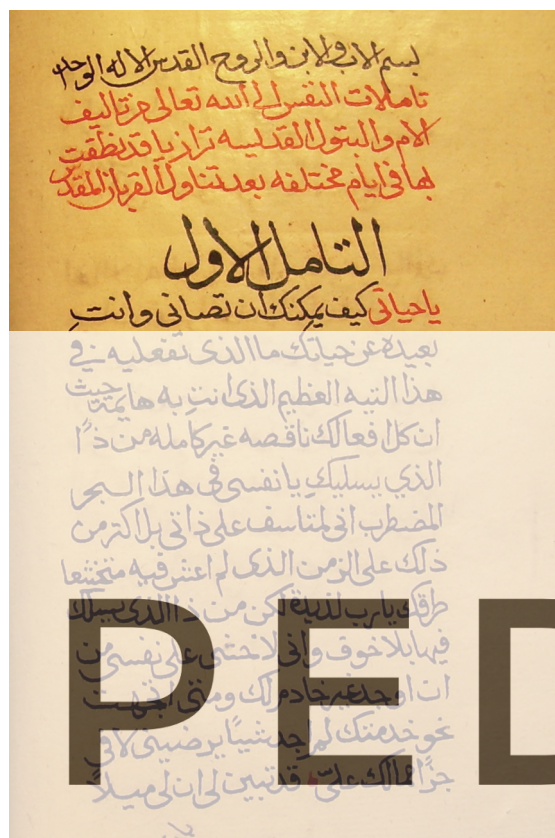 بسم الاب والابن والروح القدس الاله الواحد
تاملات النفس الى الله تعالى من تاليف
الام والبتول القديسه ترازيا قد نطقت
بها فى ايام مختلفه بعد تناول القربان المقدس
التامل الاول
يا حياتى كيف يمكنك ان تصانى وانتِ
بعيدة عن حياتك ما الذى تفعليه فى
هذا التيه العظيم الذى انتِ به هايمة حيث
ان كل افعالك ناقصه غير كامله من ذا
الذي يسليكِ يا نفسى فى هذا البحر
المضطرب انى لمتاسف على ذاتى بل اكثر من
ذلك على الزمن الذى لم اعش فيه متخشعا
طرقك يارب لذيذة لكن من ذا الذى يسلك
فيها بلا خوف وانى لاخشى على نفسى من
ان اوجد غير خادم لك ومتى اتجهت
نحو خدمتك لم اجد شيئًا يرضينى لافى
قد تبين لى ان لى ميلاً
PED